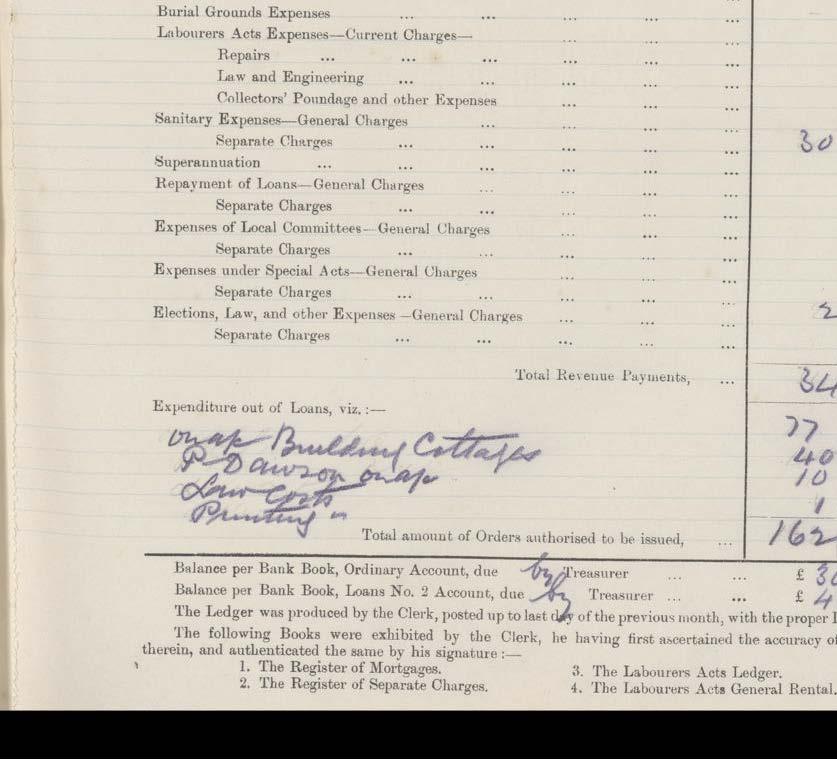 Burial Grounds Expenses ... ... ... ... ...
Labourers Acts Expenses—Current Charges— ... ... ...
Repairs ... ... ... ... ... ...
Law and Engineering ... ... ... ... ...
Collectors' Poundage and other Expenses ... ... ...
Sanitary Expenses—General Charges ... ... ... ...
Separate Charges ... ... ... ... ... 30
Superannuation ... ... ... ... ... ...
Repayment of Loans—General Charges ... ... ... ...
Separate Charges ... ... ... ... ...
Expenses of Local Committees—General Charges ... ... ...
Separate Charges ... ... ... ... ...
Expenses under Special Acts—General Charges ... ... ...
Separate Charges ... ... ... ... ...
Elections, Law, and other Expenses—General Charges ... ... ... 2
Separate Charges ... ... ... ... ...
Total Revenue Payments, ... 34
Expenditure out of Loans, viz.:—
Building Cottages 77
P Dawson 40
Law Costs 10
Printing 1
Total amount of Orders authorised to be issued, ... 162
Balance per Bank Book, Ordinary Account, due by Treasurer ... ... £ 30
Balance per Bank Book, Loans No. 2 Account, due by Treasurer ... ... £ 4
The Ledger was produced by the Clerk, posted up to last day of the previous month, with the proper
The following Books were exhibited by the Clerk, he having first ascertained the accuracy of
therein, and authenticated the same by his signature:—
1. The Register of Mortgages. 3. The Labourers Acts Ledger.
2. The Register of Separate Charges. 4. The Labourers Acts General Rental.